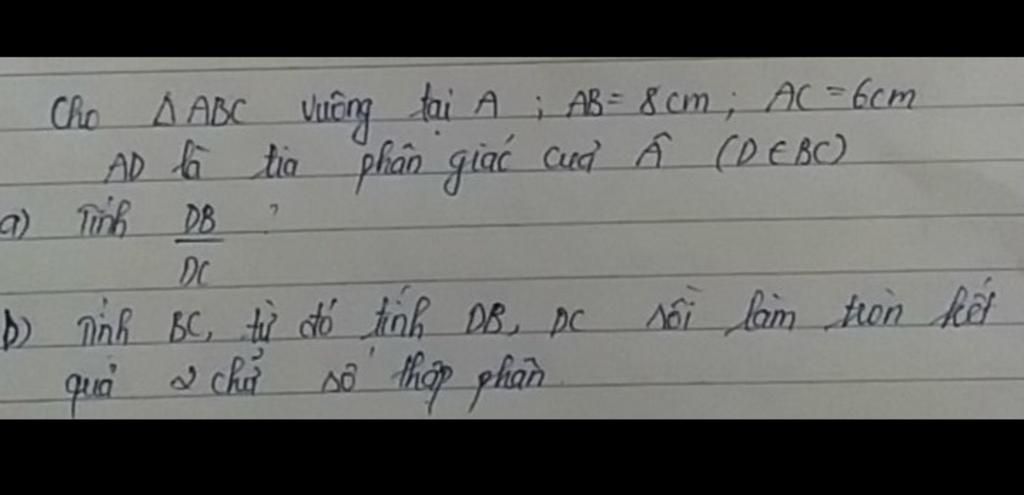 Cho Δ ABC vuông tại A ; AB = 8cm ; AC = 6cm
AD là tia phân giác cuả Â (D ∈ BC)
a) Tính DB/DC ?
b) Tính BC, từ đó tính DB, DC rồi làm tròn kết
quả 2 chử số thập phân.